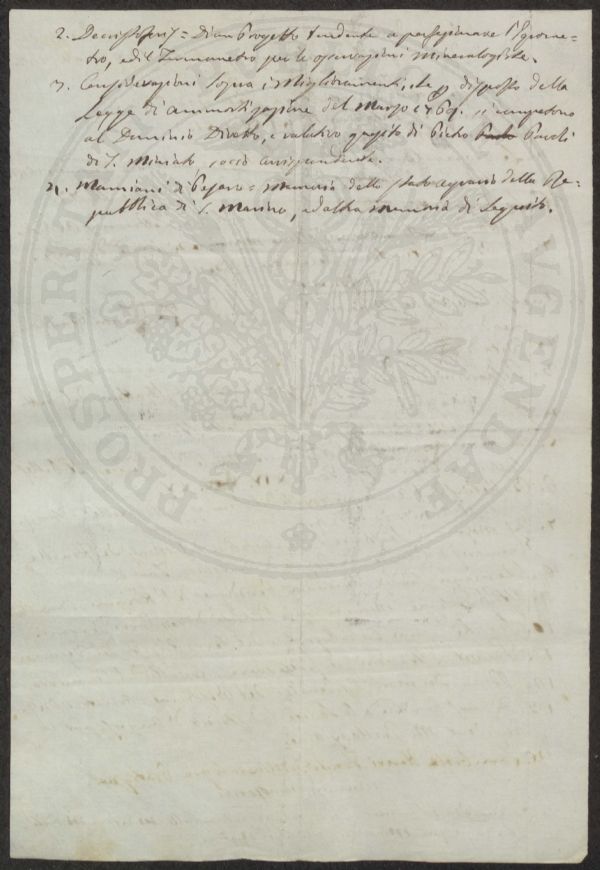 2. = Di un Progetto tendente a perfezionare l'Igrome=
tro, ed il Termometro per le osservazioni Mineralogiche.
3. Considerazioni sopra i Miglioramenti, che disposto della
Legge di ammortizazione del Marzo 1769. si competono
al Dominio Diretto, e relativo quesito di Pietro Paoli
di S. Miniato socio Corrispondente.
4. Mamiani di Pesaro = Memoria dello stato agrario della Re=
pubblica di S. Marino, ed altra Memoria di seguito.
PROSPERITATI AUGENDAE